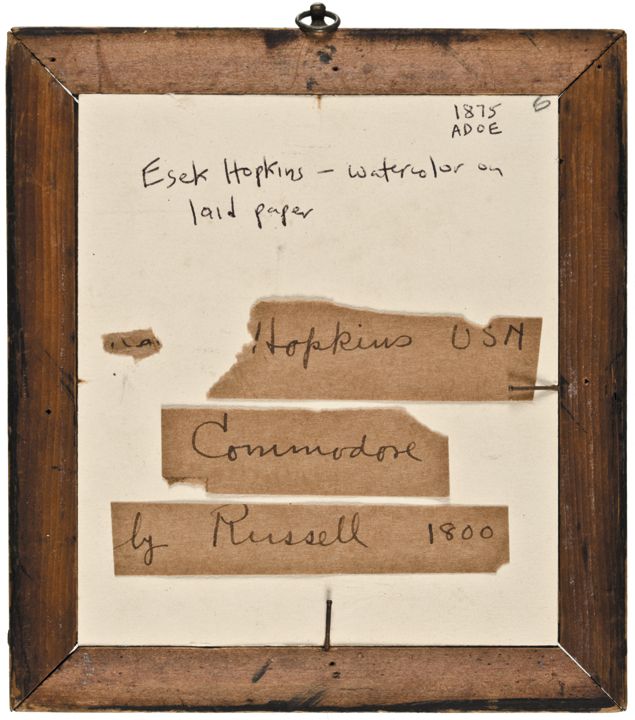 6
1875
ADOE
Esek Hopkins – watercolor on
laid paper
Hopkins USN
Commodore
by Russell 1800